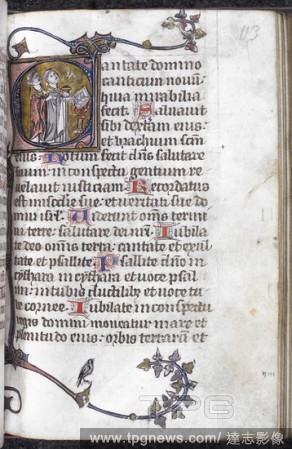 113
antate domino
canticum novum
quia mirabilia
fecit. Salvavit
sibi dextera eius:
et brachium scm
eius. Notum fecit dns salutare
suum: in conspectu gentium re
velavit iusticiam. Recordatus
est misericordie sue: et veritati sue do
mui isrl. Viderunt omnes termi
ni terre: salutare dei nri. Iubila
te deo omnis terra: cantate et exul
tate et psallite. Psallite dno in
cythara in cythara et voce psal
mi: in tubis ductilibus et voce tu
be cornee. Iubilate in conspectu
regis domini: moveatur mare et
plenitudo eius: orbis terrarum et
TPG
www.tpgnews.com / 達志影像